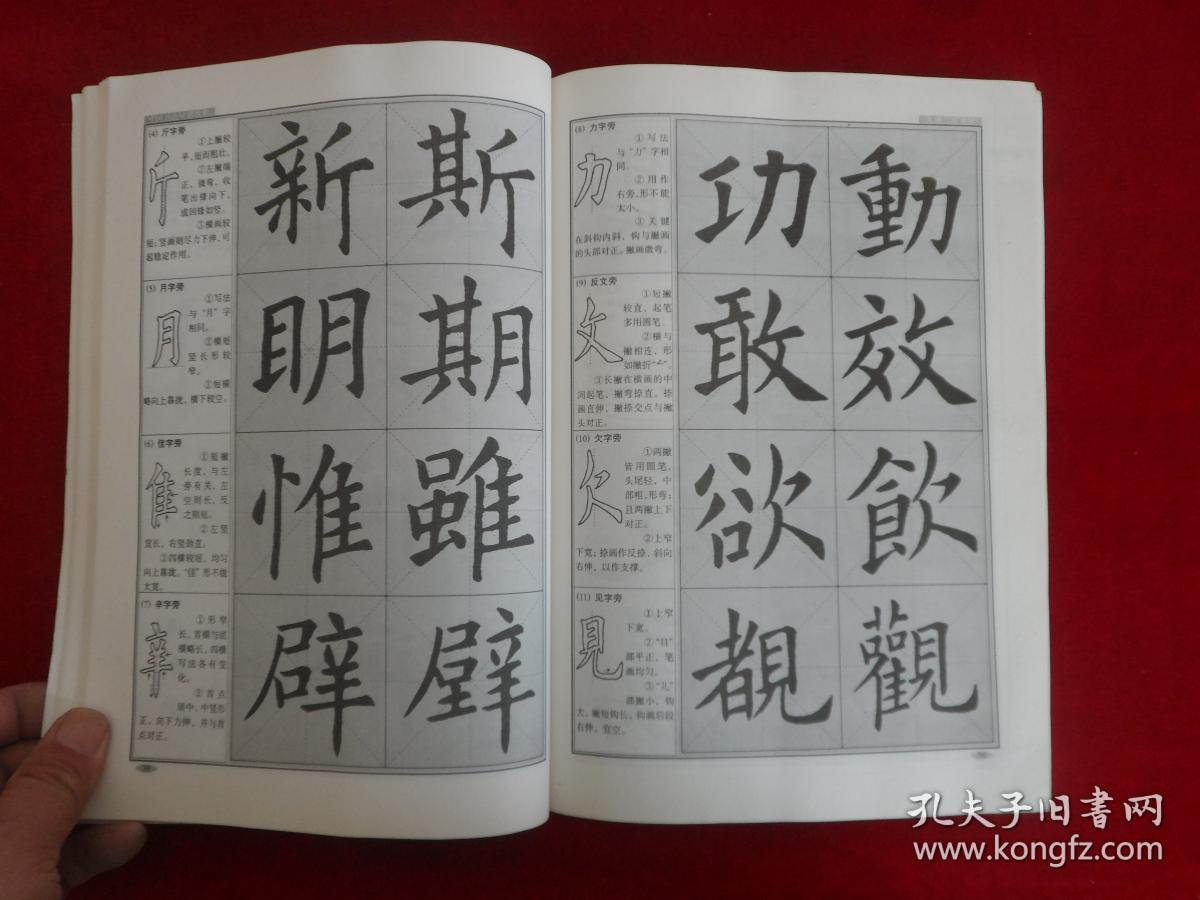 (4) 斤字旁
斤
①上撇较
平，短而粗壮。
②左撇端
正，微弯，收
笔出锋向下，
或回锋如竖。
③横画较
短；竖画则尽力下伸，可
起稳定作用。
新 斯
(5) 月字旁
月
①写法
与“月”字
相同。
②横短
竖长形较
窄。
③短横
略向上靠拢，横下较空。
明 期
(6) 隹字旁
隹
①短撇
长度，与左
旁有关，左
空则长，反
之则短。
②左竖
宜长，右竖劲直。
③四横较短，均匀
向上靠拢。“隹”形不能
太宽。
惟 雖
(7) 辛字旁
辛
①形窄
长，首横与底
横略长，四横
写法各有变
化。
②首点
居中，中竖形
正，向下力伸，并与首
点对正。
辟 壁
(8) 力字旁
力
①写法
与“力”字相
同。
②用作
右旁，形不能
太小。
③关键
在斜钩内斜，钩与撇画
的头部对正。撇画微弯。
功 動
(9) 反文旁
攵
①短撇
较直，起笔
多用圆笔。
②横与
撇相连，形
如撇折“㇜”。
③长撇在横画的中
间起笔，撇弯捺直，捺
画直伸，撇捺交点与撇
头对正。
敢 效
(10) 欠字旁
欠
①两撇
皆用圆笔，
头尾轻，中
部粗，形弯；
且两撇上下
对正。
②上窄
下宽；捺画作反捺，斜向
右伸，以作支撑。
欲 飲
(11) 见字旁
見
①上窄
下宽。
②“目”
部平正，笔
画均匀。
③“儿”
部撇小，钩
大，撇短钩长，钩画后段
右伸，宜空。
覩 觀
孔夫子旧書网
www.kongfz.com